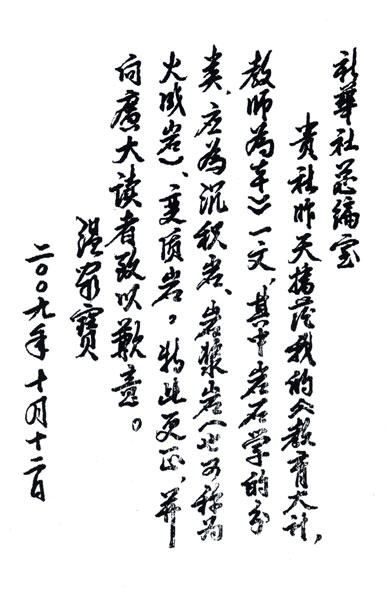 新华社总编室
贵社昨天播发我的《教育大计，
教师为本》一文，其中岩石学的分
类，应为沉积岩、岩浆岩（也可称为
火成岩）、变质岩。特此更正，并
向广大读者致以歉意。
温家宝
二〇〇九年十月十二日